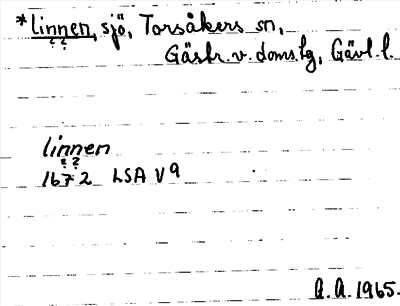 *Linnen, sjö, Torsåkers sn,
? ?
Gästr. v. doms.lg, Gävl. l.
linnen
? ?
1672 LSA V 9
A.A. 1965.